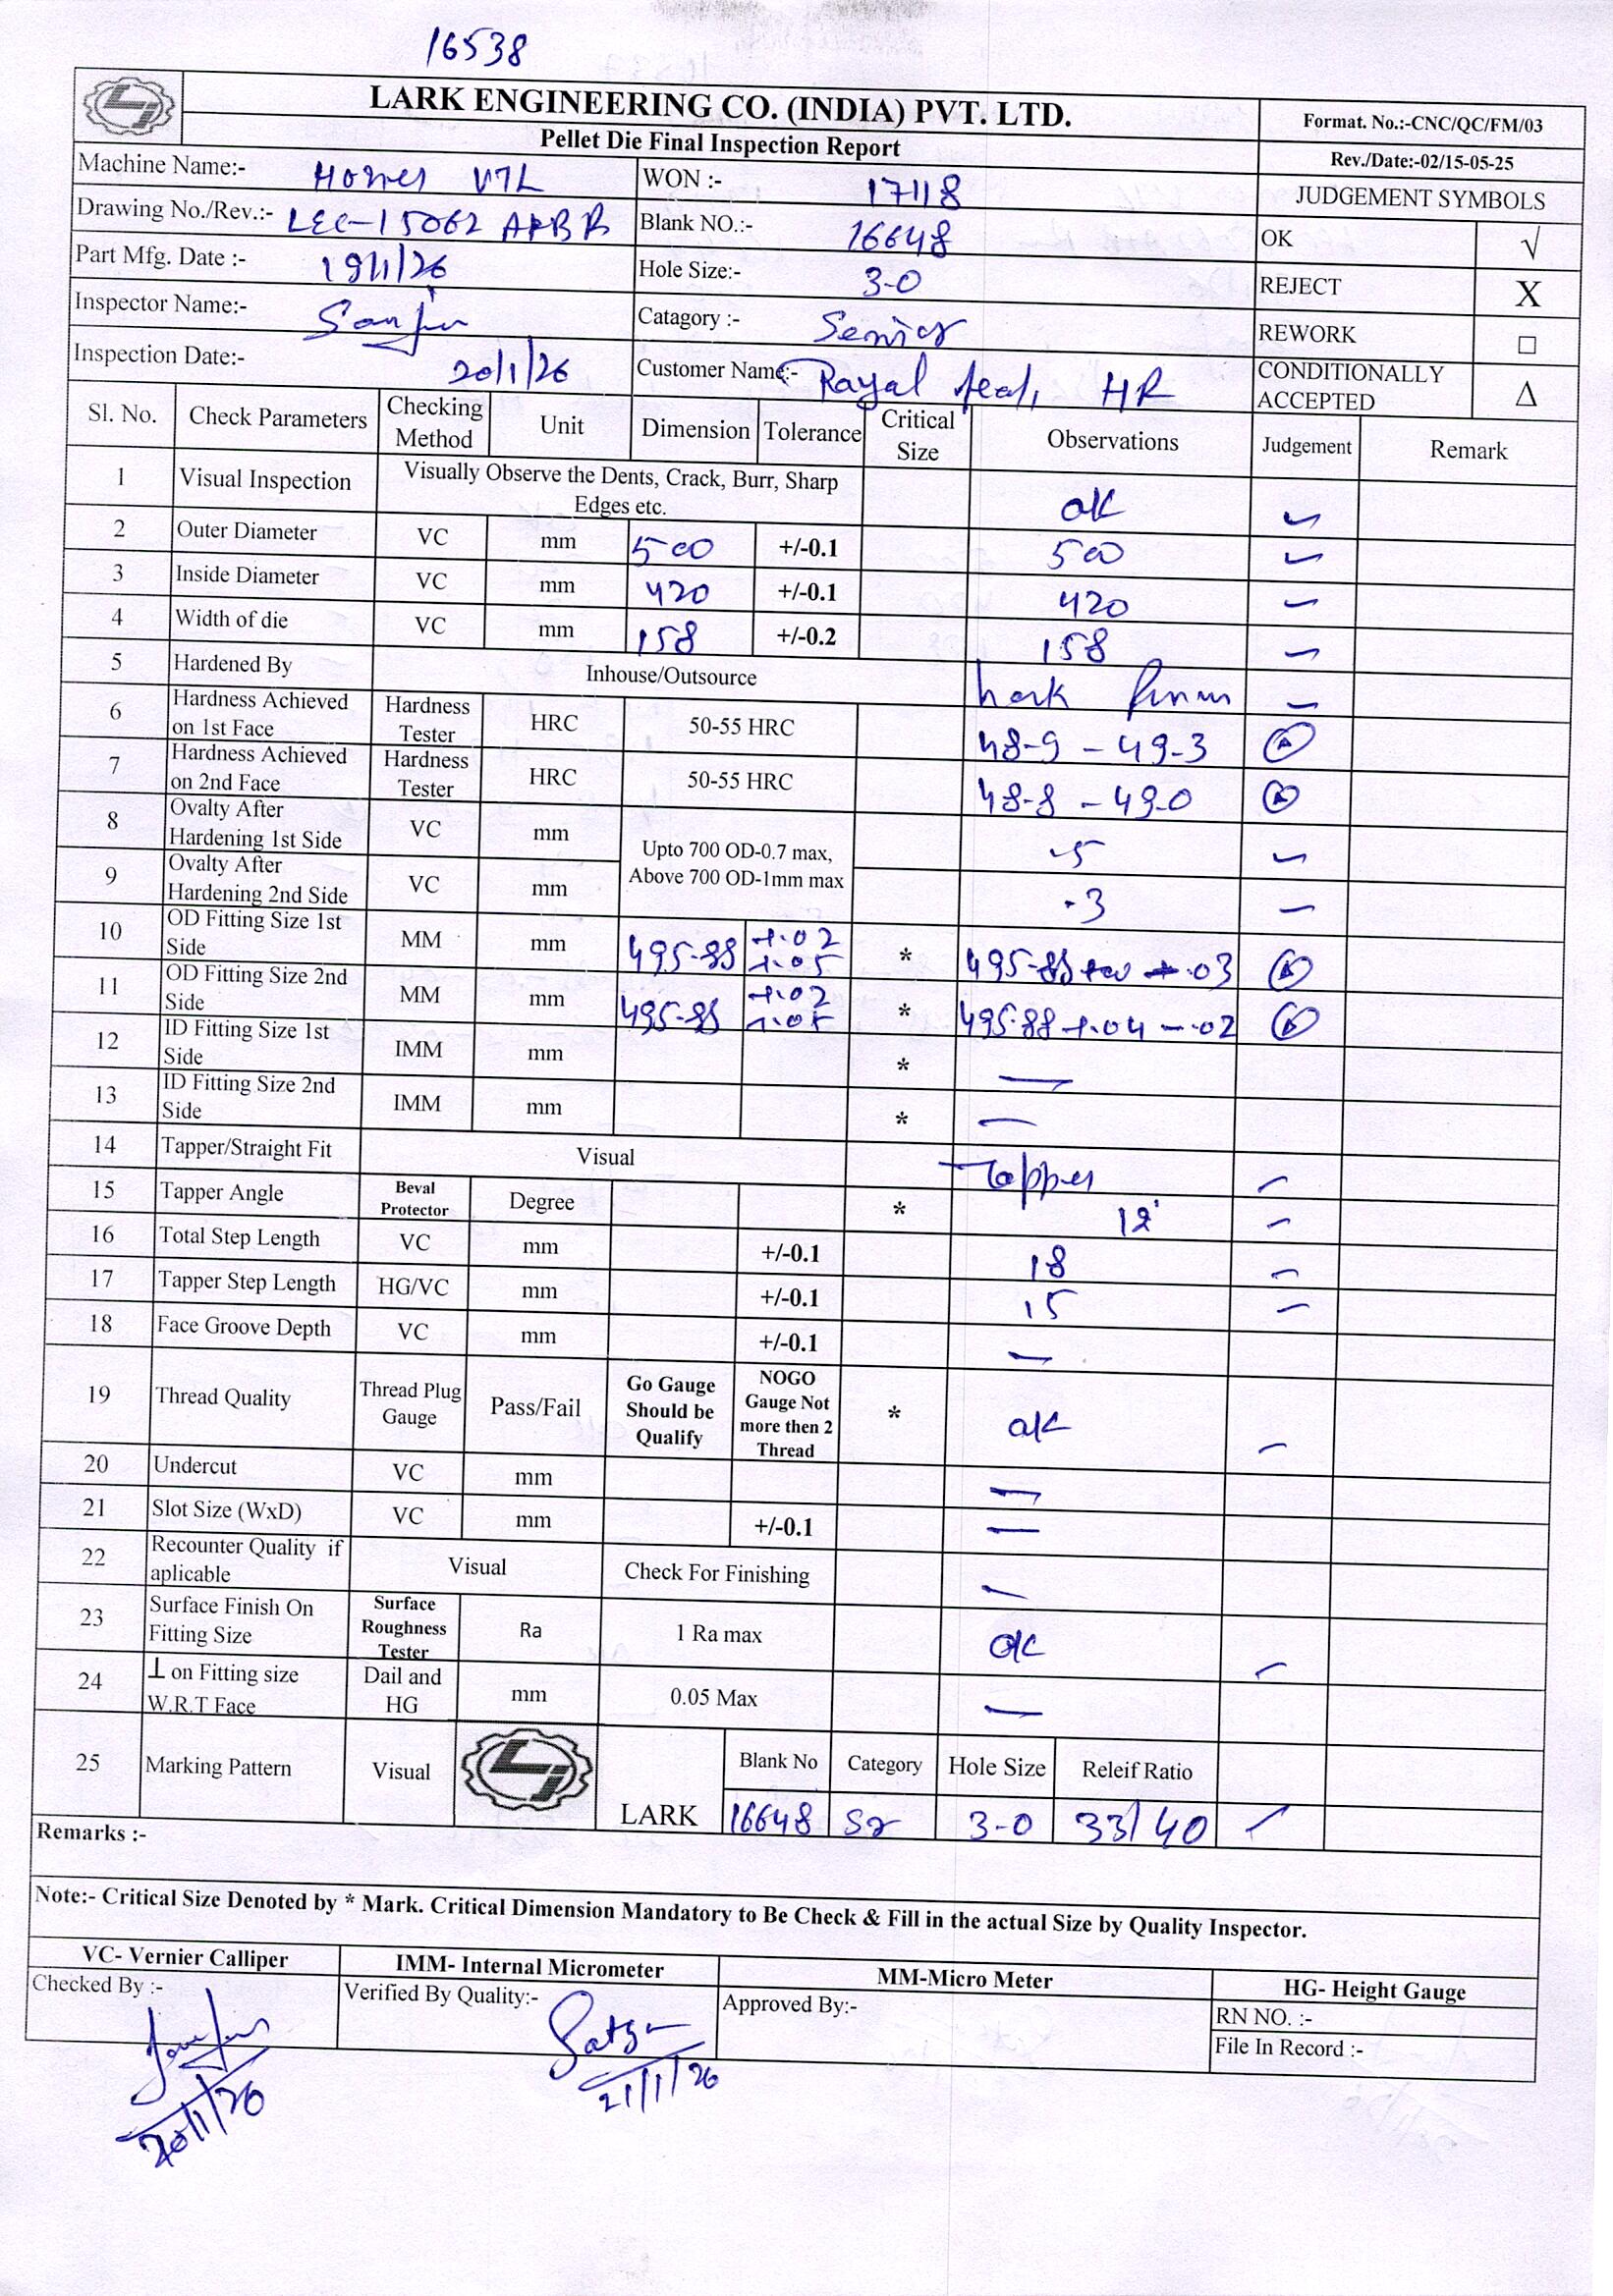 16538
LARK ENGINEERING CO. (INDIA) PVT. LTD.
Pellet Die Final Inspection Report
Format. No.:-CNC/QC/FM/03
Rev./Date:-02/15-05-25
Machine Name:- VTL
WON :- 17118
JUDGEMENT SYMBOLS
Drawing No./Rev.:- LEC-15062
Blank NO.:- 16648
OK √
Part Mfg. Date :- 19/1/26
Hole Size:- 3-0
REJECT X
Inspector Name:-
Catagory :- Senior
REWORK □
Inspection Date:- 20/1/26
Customer Name:- Rayal feed, HR
CONDITIONALLY ACCEPTED Δ
Sl. No. Check Parameters Checking Method Unit Dimension Tolerance Critical Size Observations Judgement Remark
1 Visual Inspection Visually Observe the Dents, Crack, Burr, Sharp Edges etc. ok
2 Outer Diameter VC mm 500 +/-0.1 500
3 Inside Diameter VC mm 420 +/-0.1 420
4 Width of die VC mm 158 +/-0.2 158
5 Hardened By Inhouse/Outsource
6 Hardness Achieved on 1st Face Hardness Tester HRC 50-55 HRC 48-9 - 49-3
7 Hardness Achieved on 2nd Face Hardness Tester HRC 50-55 HRC 48-8 - 49-0
8 Ovalty After Hardening 1st Side VC mm Upto 700 OD-0.7 max, Above 700 OD-1mm max .5
9 Ovalty After Hardening 2nd Side VC mm .3
10 OD Fitting Size 1st Side MM mm 495-88 +.02 +.05 * 495-88 +.03
11 OD Fitting Size 2nd Side MM mm 495-88 +.02 +.05 * 495-88 +.04 -.02
12 ID Fitting Size 1st Side IMM mm * —
13 ID Fitting Size 2nd Side IMM mm * —
14 Tapper/Straight Fit Visual Tapper
15 Tapper Angle Beval Protector Degree * 12°
16 Total Step Length VC mm +/-0.1 18
17 Tapper Step Length HG/VC mm +/-0.1 15
18 Face Groove Depth VC mm +/-0.1 —
19 Thread Quality Thread Plug Gauge Pass/Fail Go Gauge Should be Qualify NOGO Gauge Not more then 2 Thread * ok
20 Undercut VC mm —
21 Slot Size (WxD) VC mm +/-0.1 —
22 Recounter Quality if aplicable Visual Check For Finishing —
23 Surface Finish On Fitting Size Surface Roughness Tester Ra 1 Ra max ok
24 ⊥ on Fitting size W.R.T Face Dail and HG mm 0.05 Max —
25 Marking Pattern Visual LARK Blank No Category Hole Size Releif Ratio
16648 Sr 3-0 33/40
Remarks :-
Note:- Critical Size Denoted by * Mark. Critical Dimension Mandatory to Be Check & Fill in the actual Size by Quality Inspector.
VC- Vernier Calliper IMM- Internal Micrometer MM-Micro Meter HG- Height Gauge
Checked By :- Verified By Quality:- Approved By:- RN NO. :-
File In Record :-
20/1/26 21/1/26